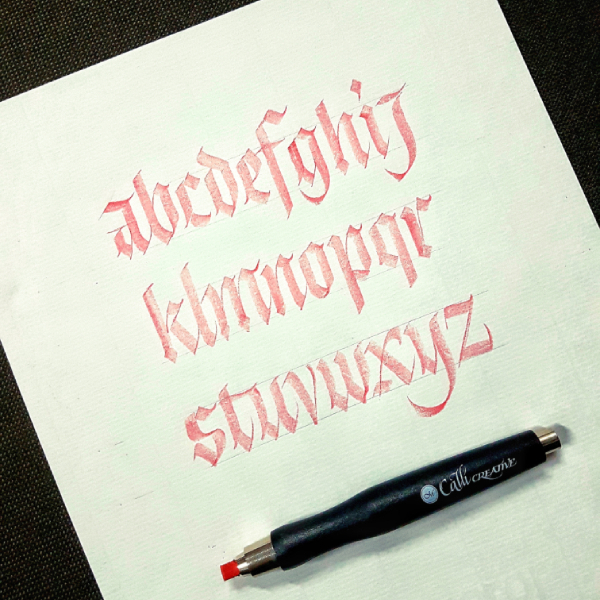 abcdefghij
klmnopqr
stuvwxyz
Calli CREATIVE